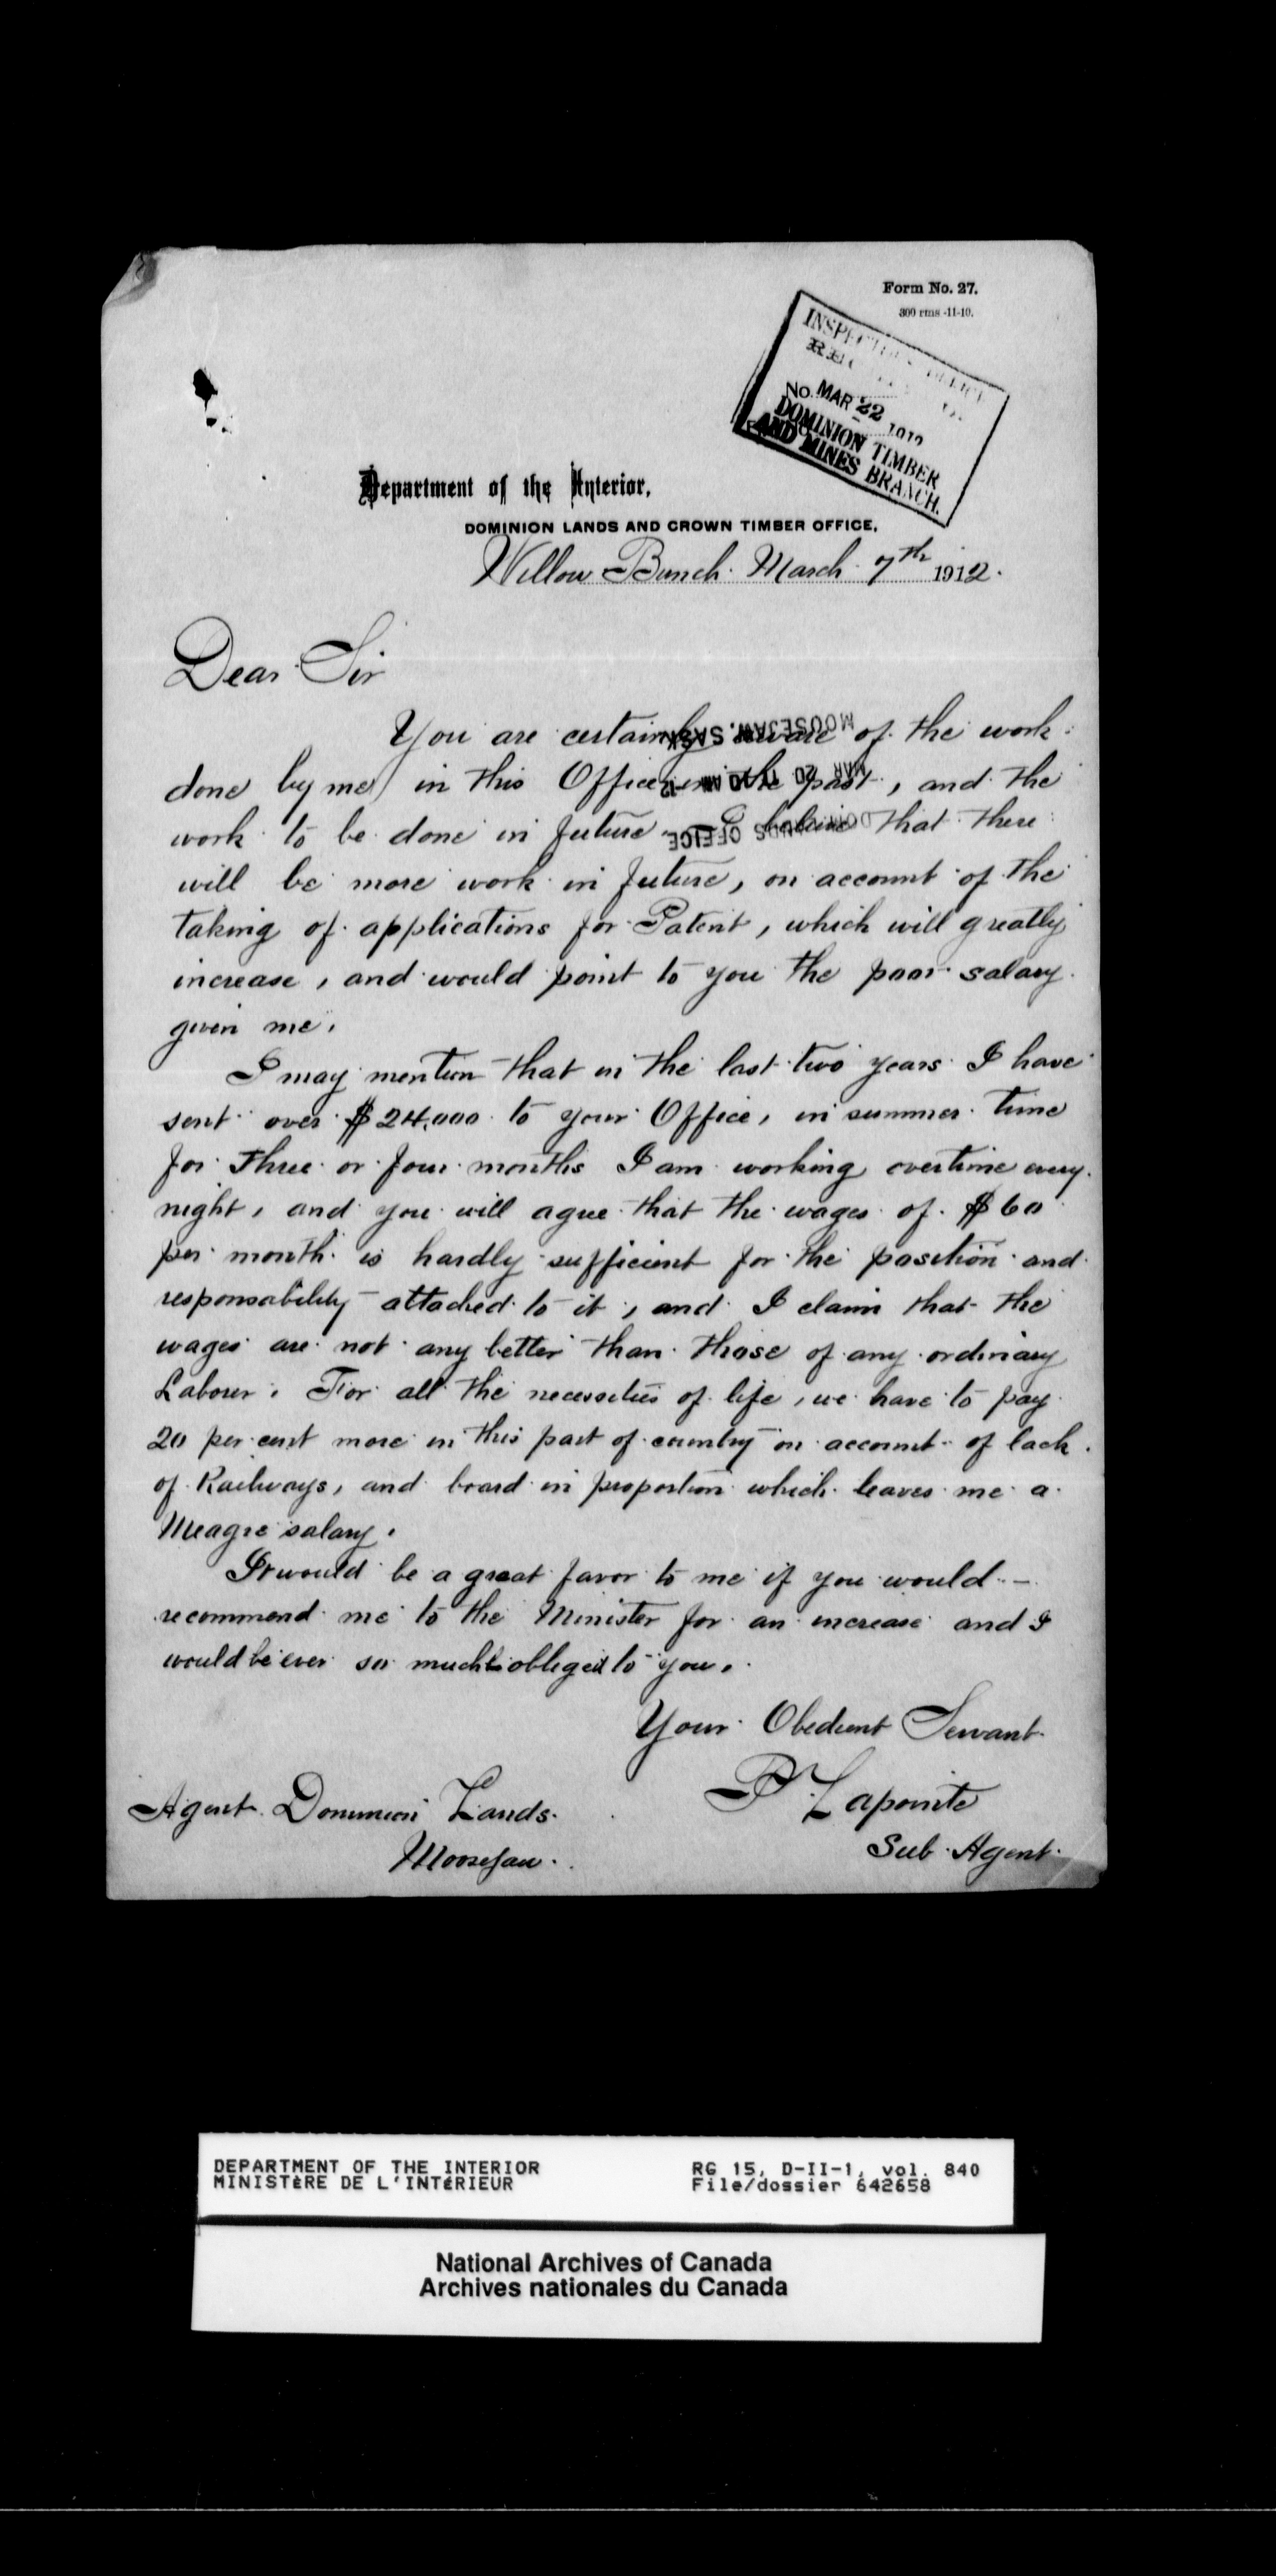 Form No. 27.
300 rms -11-10.
No. MAR 22 1912
DOMINION TIMBER
AND MINES BRANCH.
Department of the Interior,
DOMINION LANDS AND CROWN TIMBER OFFICE,
Willow Bunch March 7th 1912.
Dear Sir
You are certainly aware of the work
done by me in this Office in the past, and the
work to be done in future. I believe that there
will be more work in future, on account of the
taking of applications for Patent, which will greatly
increase, and would point to you the poor salary
given me.
I may mention that in the last two years I have
sent over $24,000 to your Office, in summer time
for three or four months I am working overtime every
night, and you will agree that the wages of $60
per month is hardly sufficient for the position and
responsability attached to it, and I claim that the
wages are not any better than those of any ordinary
Labourer. For all the necessities of life, we have to pay
20 per cent more in this part of country on account of lack
of Railways, and board in proportion which leaves me a
Meagre salary.
It would be a great favor to me if you would -
recommend me to the Minister for an increase and I
would be ever so much obliged to you.
Your Obedient Servant
P Lapointe
Sub Agent
Agent Dominion Lands
MooseJaw.
MOOSEJAW, SASK.
MAR 20 12
DOMINION LANDS OFFICE
DEPARTMENT OF THE INTERIOR
MINISTÈRE DE L'INTÉRIEUR
RG 15, D-II-1, vol. 840
File/dossier 642658
National Archives of Canada
Archives nationales du Canada